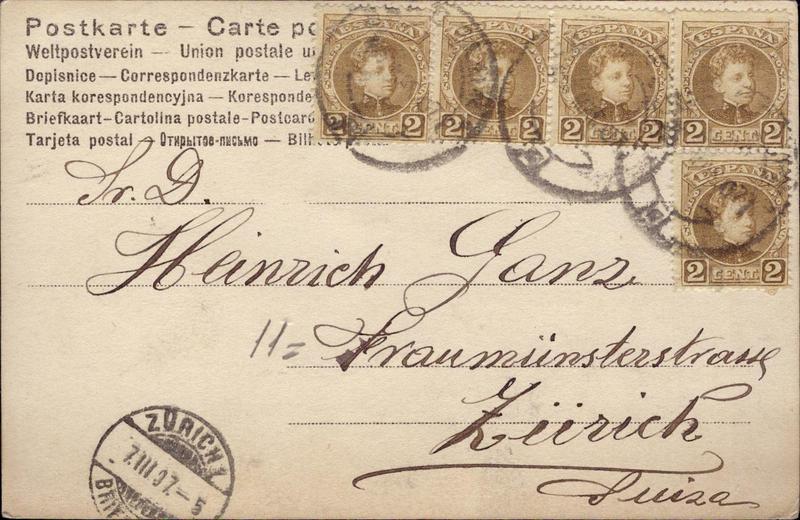 Postkarte – Carte po
Weltpostverein — Union postale u
Dopisnice — Correspondenzkarte — Le
Karta korespondencyjna — Koresponde
Briefkaart — Cartolina postale - Postcard
Tarjeta postal — Открытое-письмо — Bil
ESPAÑA
2 CENT. 2
ESPAÑA
2 CENT. 2
ESPAÑA
2 CENT. 2
ESPAÑA
2 CENT. 2
ESPAÑA
2 CENT. 2
Sr. D.
Heinrich Ganz
11=
Fraumünsterstrasse
Zürich
Suiza
ZÜRICH 1
7.III.07.-5
BRIE